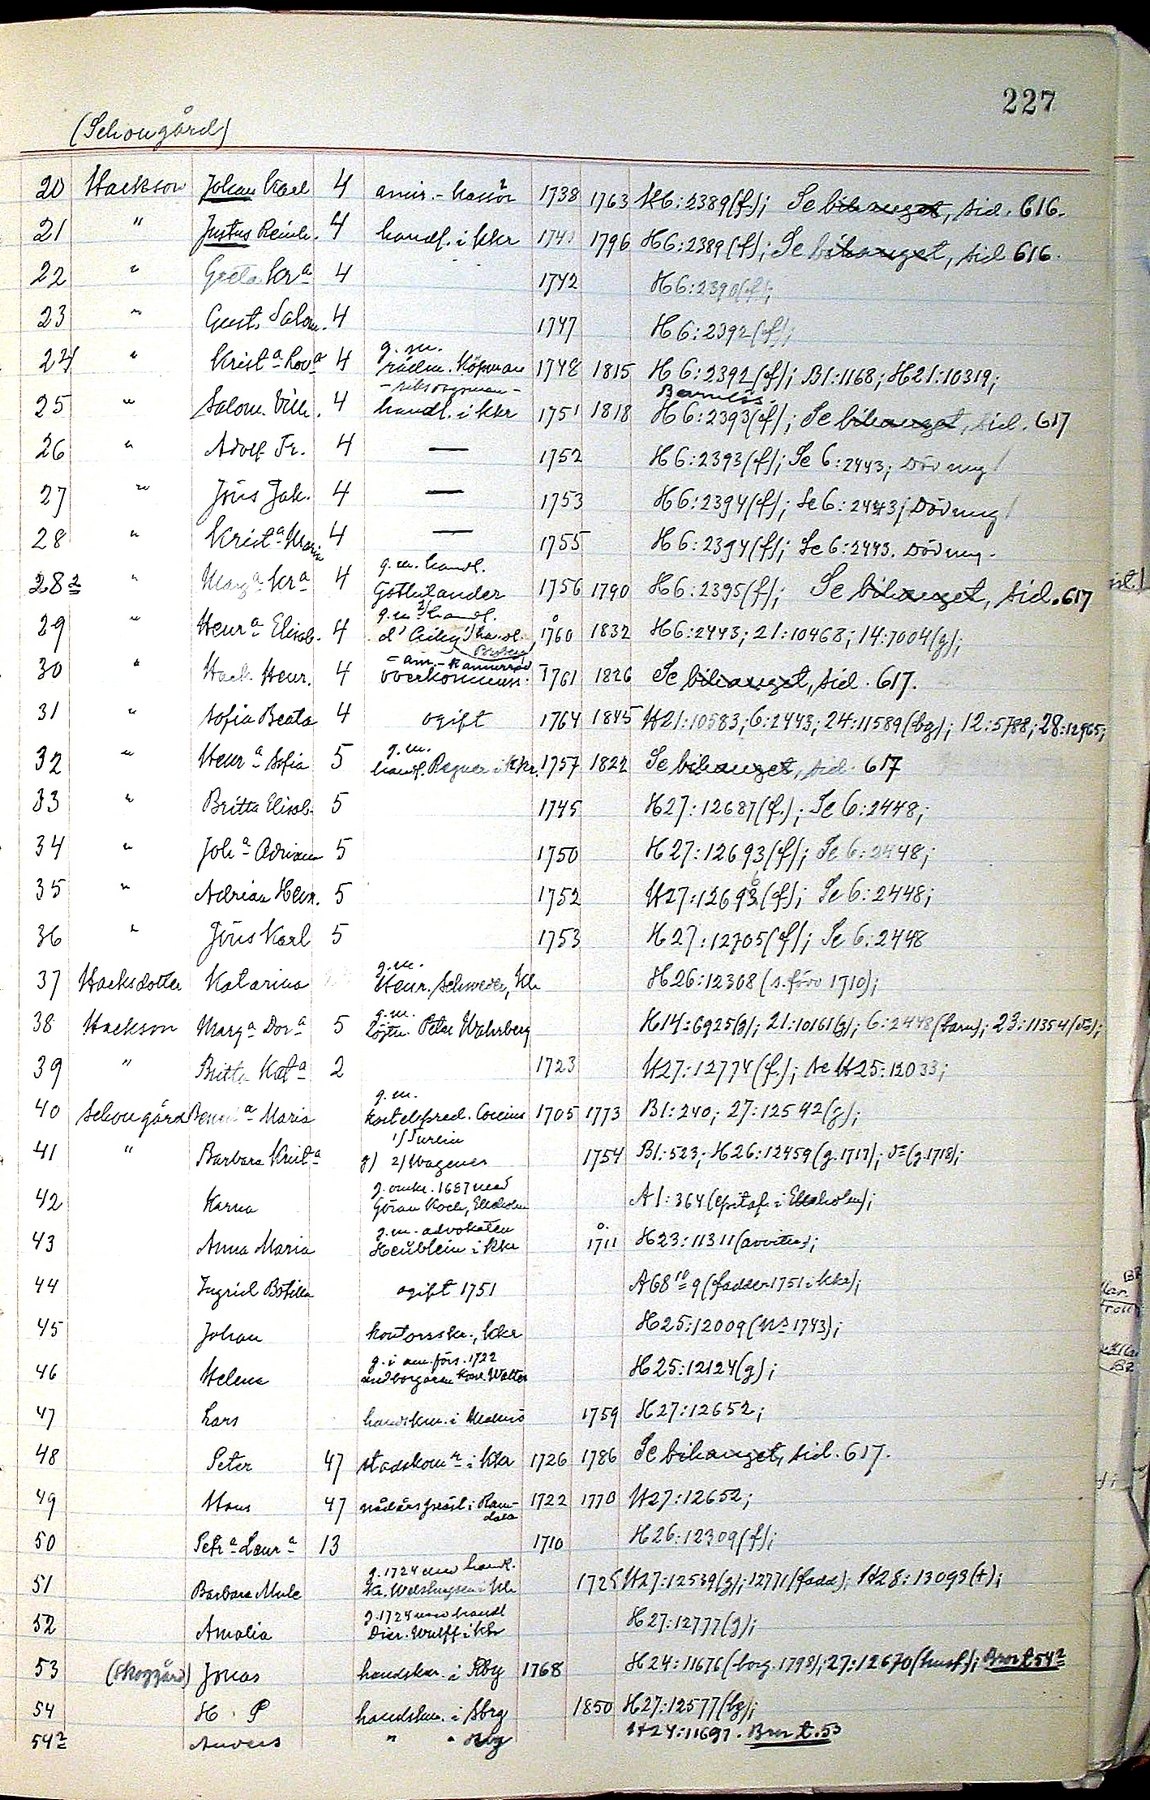 227
(Schougård)
20 Hackson Johan Karl 4 amir.-kassör 1738 1763 H6:2389(f); Se bihanget, sid. 616.
21 " Justus Reinh. 4 handl. i Kkr 1741 1796 H6:2389(f); Se bihanget, sid 616.
22 " Greta Kra 4 1742 H6:2390(f);
23 " Gust. Salom. 4 1747 H6:2392(f);
g. m.
24 " Krista Lova 4 rådm. Köpman 1748 1815 H6:2392(f); B1:1168; H21:10319;
- riksdagsman - Barnlös.
25 " Salom. Vilh. 4 handl. i Kkr 1751 1818 H6:2393(f); Se bihanget, sid. 617
26 " Adolf Fr. 4 — 1752 H6:2393(f); Se 6:2443; Död ung!
27 " Jöns Jak. 4 — 1753 H6:2394(f); Se 6:2443; Död ung!
28 " Krista Maria 4 — 1755 H6:2394(f); Se 6:2443. Död ung.
g. m. handl.
28 2 " Marga Kra 4 Götherlander 1756 1790 H6:2395(f); Se bihanget, sid. 617
g. m. 2/ handl.
29 " Henra Elisab. 4 1760 1832 H6:2443; 21:10468; 14:7004(g);
= am.-kamrerare
30 " Hack Henr. 4 överkommiss. 1761 1826 Se bihanget, sid. 617.
31 " Sofia Beata 4 ogift 1764 1845 H21:10583; 6:2443; 24:11589(bg); 12:5788; 28:12965;
g. m.
32 " Henra Sofia 5 handl. Regner i Kkr. 1757 1822 Se bihanget, sid. 617
33 " Britta Elisab. 5 1745 H27:12687(f.); Se 6:2448;
34 " Joha Adriana 5 1750 H27:12693(f); Se 6:2448;
35 " Adrian Henr. 5 1752 H27:12698(f); Se 6:2448;
36 " Jöns Karl 5 1753 H27:12705(f); Se 6:2448
g. m.
37 Hacksdotter Katarina Henr. Schweder, Kh H26:12308 (s. förv 1710);
g. m.
38 Hackson Marga Dora 5 löjtn. Peter Wahrberg H14:6925(g); 21:10161(g); 6:2448(barn); 23:11354(do);
39 " Britta Kata 2 1723 H27:12774(f.); se H25:12033;
g. m.
40 Schougård a Maria 1705 1773 B1:240; 27:12542(g);
1/ Turein
41 " Barbara Krista g) 2/ Wagener 1754 B1:523; H26:12459(g. 1717); do(g. 1718);
g. omkr. 1687 med
42 Karna Göran Koch, Elleholm A1:364 (epitaf. i Elleholm);
g. m. advokaten
43 Anna Maria Heublein i Kkr 1711 H23:11311(avvittr.);
44 Ingrid Botilla ogift 1751 A68 10 9 (fadder 1751 i Kkr);
45 Johan kontorsskr., Kkr H25:12009 (No 1743);
g. i am. förs. 1722
46 Helena Walter H25:12124(g);
47 Lars handskm. i Malmö 1759 H27:12652;
48 Peter 47 stadskomr i Kkr 1726 1786 Se bihanget, sid. 617.
49 Hans 47 nådårspräst i Ram-dala 1722 1770 H27:12652;
50 Petra Laura 13 1710 H26:12309(f);
g. 1724 med handl.
51 Barbara Mule 1725 H27:12539(g); 12771(fadd); H28:13093(+);
g. 1724 med handl
52 Amalia Dier. Wulff i Kkr H27:12777(g);
53 (Skoggård) Jonas handskm. i Rby 1768 H24:11676 (borg. 1798); 27:12670(hust.); Bror t. 54 2
54 H. P handskm. i Sbrg 1850 H27:12577(bg);
54 2 Anders " " Rby H24:11697. Bror t. 53